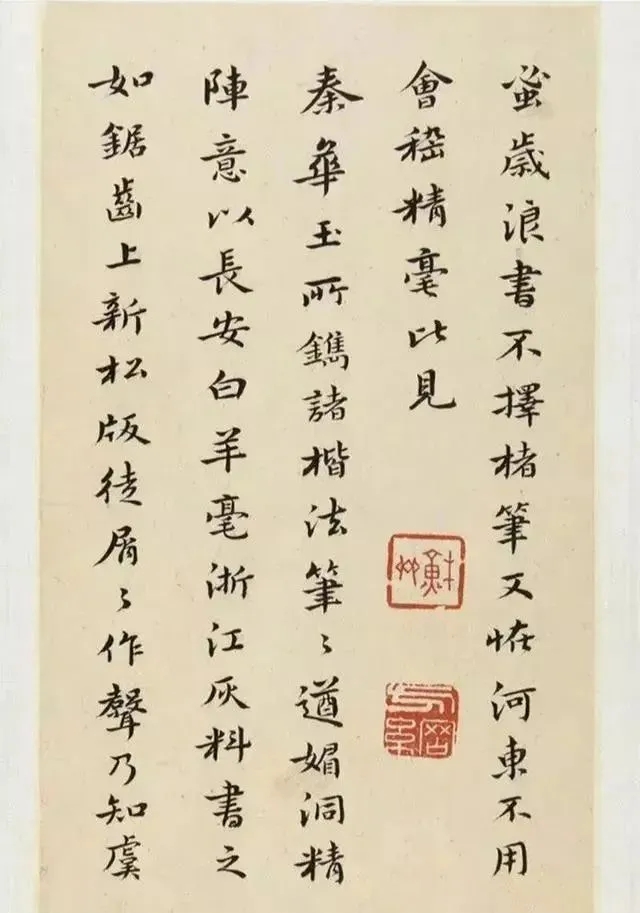 蚤歲浪書不擇楮筆又恠河東不用
會嵇精毫比見
秦華玉所鐫諸楷法筆〻遒媚洞精
陣意以長安白羊毫浙江灰料書之
如鋸齒上新松版徒屑〻作聲乃知虞